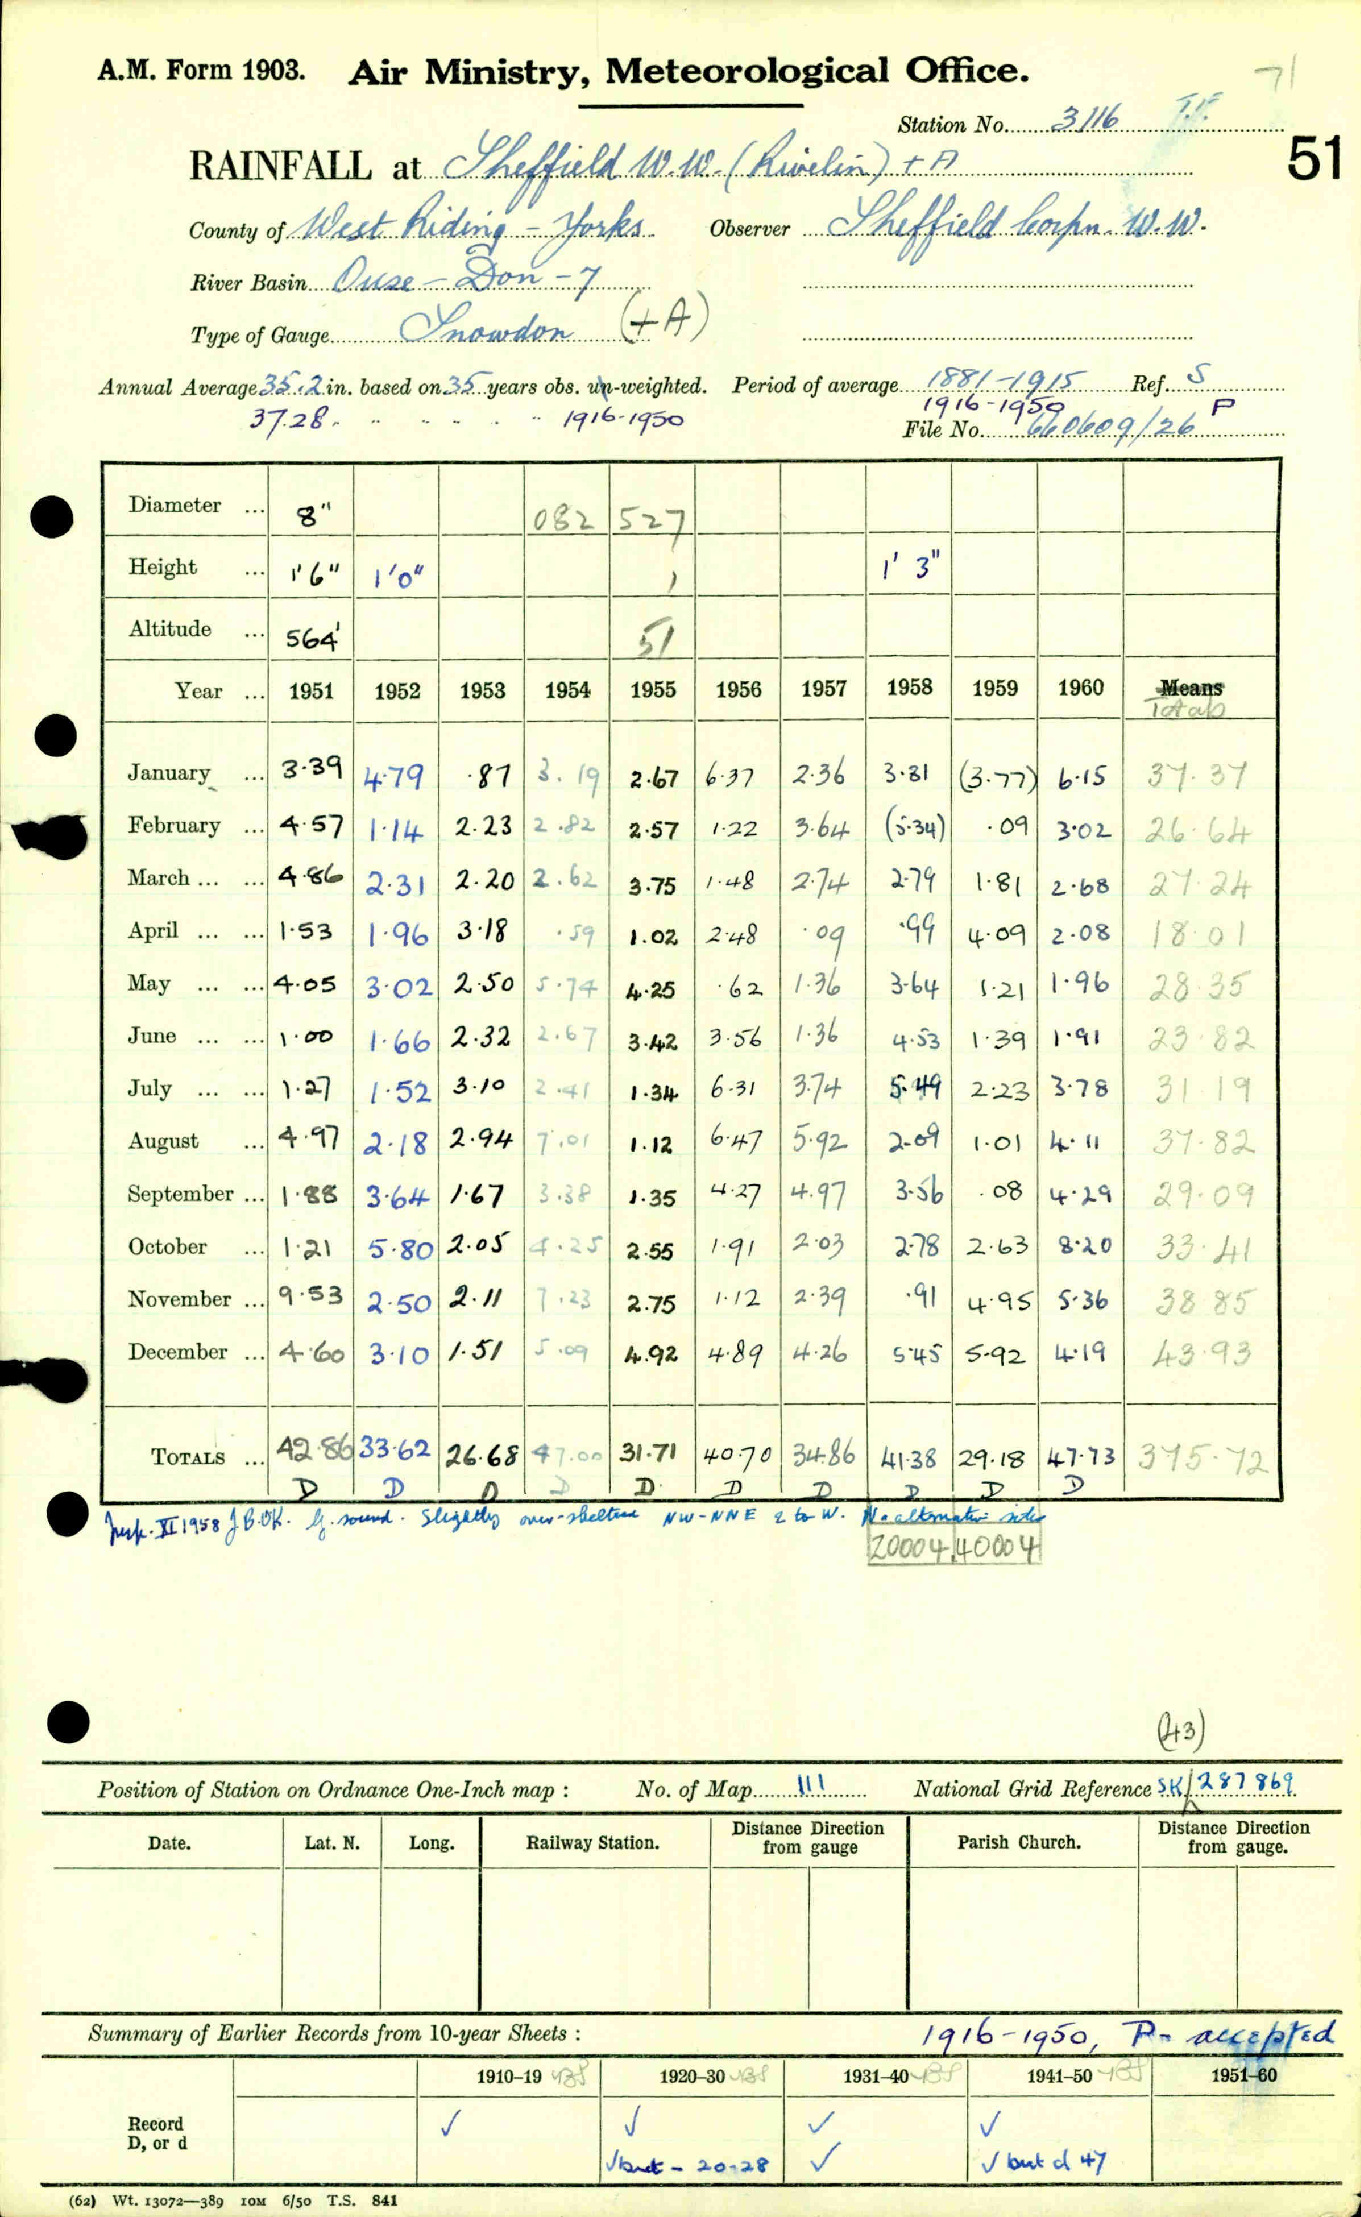 71
A.M. Form 1903. Air Ministry, Meteorological Office.
Station No. 3116
51
RAINFALL at Sheffield W.W. (Rivelin) + A
County of West Riding - Yorks. Observer Sheffield Corpn. W.W.
River Basin Ouse - Don - 7
Type of Gauge Snowdon (+A)
Annual Average 35.2 in. based on 35 years obs. un-weighted. Period of average 1881-1915 Ref. S
37.28 " " " " " " 1916-1950 1916-1950 P
File No. 660609/26
Diameter ... 8" 082 527
Height ... 1'6" 1'0" 1 1' 3"
Altitude ... 564' 51
Year ... 1951 1952 1953 1954 1955 1956 1957 1958 1959 1960 Means
Totals
January ... 3.39 4.79 .87 3.19 2.67 6.37 2.36 3.81 (3.77) 6.15 37.37
February ... 4.57 1.14 2.23 2.82 2.57 1.22 3.64 (5.34) .09 3.02 26.64
March ... ... 4.86 2.31 2.20 2.62 3.75 1.48 2.74 2.79 1.81 2.68 27.24
April ... ... 1.53 1.96 3.18 .59 1.02 2.48 .09 .99 4.09 2.08 18.01
May ... ... 4.05 3.02 2.50 5.74 4.25 .62 1.36 3.64 1.21 1.96 28.35
June ... ... 1.00 1.66 2.32 2.67 3.42 3.56 1.36 4.53 1.39 1.91 23.82
July ... ... 1.27 1.52 3.10 2.41 1.34 6.31 3.74 5.49 2.23 3.78 31.19
August ... 4.97 2.18 2.94 7.01 1.12 6.47 5.92 2.09 1.01 4.11 37.82
September ... 1.88 3.64 1.67 3.38 1.35 4.27 4.97 3.56 .08 4.29 29.09
October ... 1.21 5.80 2.05 4.25 2.55 1.91 2.03 2.78 2.63 8.20 33.41
November ... 9.53 2.50 2.11 7.23 2.75 1.12 2.39 .91 4.95 5.36 38.85
December ... 4.60 3.10 1.51 5.09 4.92 4.89 4.26 5.45 5.92 4.19 43.93
TOTALS ... 42.86 33.62 26.68 47.00 31.71 40.70 34.86 41.38 29.18 47.73 375.72
D D D D D D D D D D
Insp. XI 1958 J.B.OK. G. sound. Slightly over-sheltered NW-NNE & to W. No alternative site
20004 40004
(43)
Position of Station on Ordnance One-Inch map : No. of Map 111 National Grid Reference SK/287869
Date. Lat. N. Long. Railway Station. Distance from Direction gauge Parish Church. Distance from Direction gauge.
Summary of Earlier Records from 10-year Sheets : 1916-1950, P- accepted
1910-19 1920-30 1931-40 1941-50 1951-60
Record ✓ ✓ ✓ ✓
D, or d √but - 20-28 ✓ √ but d 47
(62) Wt. 13072—389 10M 6/50 T.S. 841